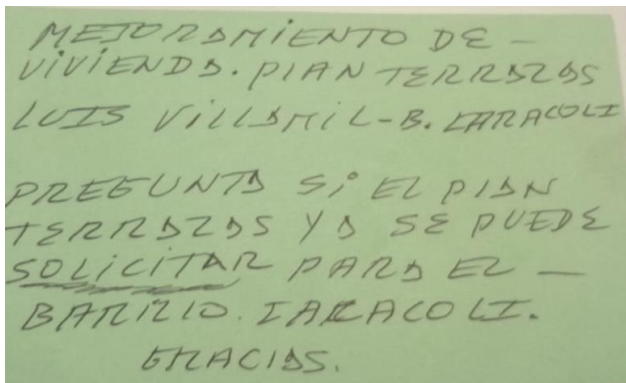 MEJORAMIENTO DE -
VIVIENDA. PLAN TERRAZAS
LUIS VILLAMIL - B. CARACOLI
PREGUNTA SI EL PLAN
TERRAZAS YA SE PUEDE
SOLICITAR PARA EL -
BARRIO. CARACOLI.
GRACIAS.